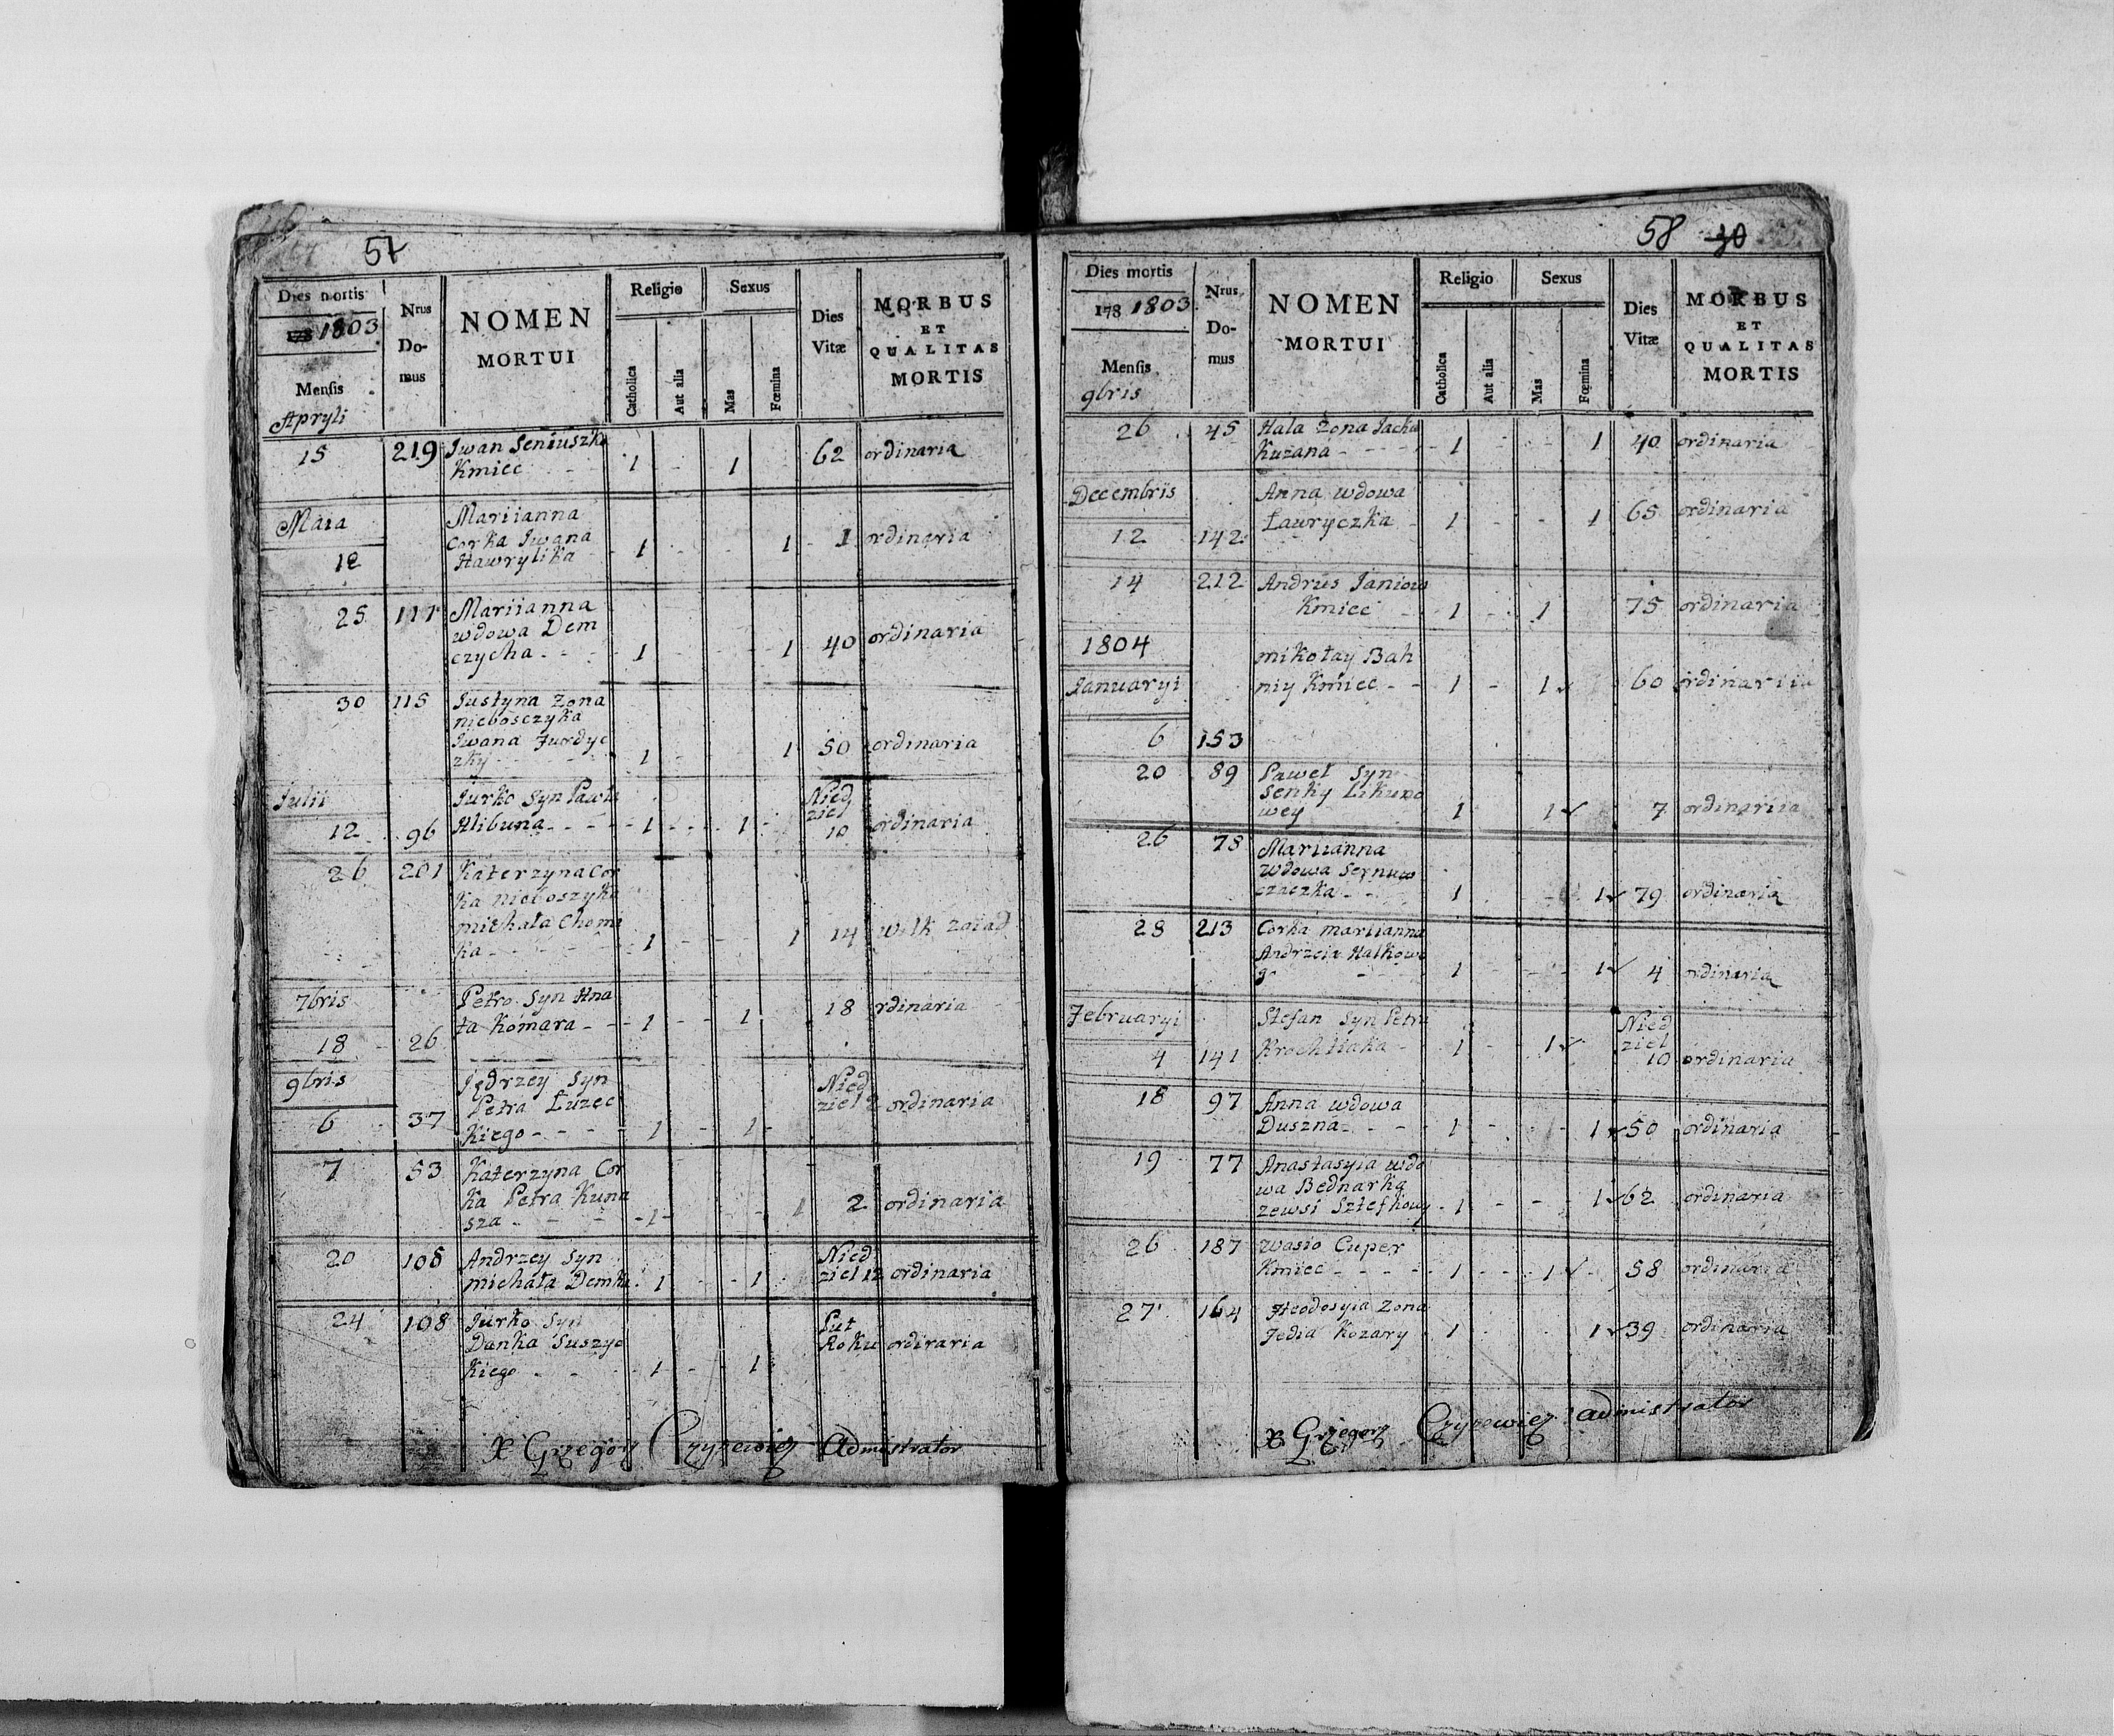 57
Dies mortis
1803
Mensis
Apryli
Nrus
Do-
mus
NOMEN
MORTUI
Religio
Catholica
Aut alia
Sexus
Mas
Fœmina
Dies
Vitæ
MORBUS
ET
QUALITAS
MORTIS
15 219 Iwan Seniuszko
Kmiec - - 1 - 1 62 ordinaria
Maia
12
Mariianna
corka Iwana
Hawrylika - 1 - - 1 - 1 ordinaria
25 111 Mariianna
wdowa Dem
czycha - - - 1 - - 1 40 ordinaria
30 115 Justyna Zona
niebosczyka
Iwana Jurdyc
zky - - - 1 - 1 50 ordinaria
Julii
12 96
Jurko Syn Pawła
Hlibuna - - - 1 - - 1 -
Nied
ziel
10 ordinaria
26 201 Katerzyna Cor
ka nieboszyka
michała Chom
ka - - - 1 - - 1 14 wilk zaiad
7bris
18 26
Petro Syn Hna
ta Komara - - 1 - - 1 18 rdinaria
9bris
6 37
Jędrzey Syn
Petra Łuzec
Kiego - - - 1 - 1 -
Nied
ziel 2 ordinaria
7 53 Katerzyna Cor
ka Petra Kuna
sza - - - 1 - - - 1 2 ordinaria
20 105 Andrzey Syn
michała Demka 1 - - 1
Nied
ziel 12 ordinaria
24 108 Jurko Syn
Danka Suszyc
Kiego - - 1 - - 1
Puł
Roku ordiraria
X Grzegorz Czyrewicz Admistrator
58 30
Dies mortis
178 1803
Mensis
9bris
Nrus
Do-
mus
NOMEN
MORTUI
Religio
Catholica
Aut alia
Sexus
Mas
Fœmina
Dies
Vitæ
MORBUS
ET
QUALITAS
MORTIS
26 45 Hala Zona Jacka
Kuzana - - - 1 - - - 1 40 ordinaria
Decembris
12 142
Anna wdowa
Ławryczka - 1 - - 1 65 ordinaria
14 212 Andrus Janiow
Kmiec - 1 - 1 75 ordinaria
1804
Januaryi
6 153
mikołay Bah
niy Kmiec - - 1 - 1 60 ordinariia
20 89 Paweł Syn
Senky Likuno
wey 1 1 7 ordinariia
26 78 Mariianna
wdowa
czaczka - - 1 - 1 79 ordinaria
28 213 Corka mariianna
Andrzeia Halkow
g - 1 - - - 1 4 ordinaria
Februaryi
4 141
Stefan Syn Petra
Krochliaka - 1 - - 1
Nied
ziel
10 ordinaria
18 97 Anna wdowa
Duszna - - - 1 - - 1 50 ordinaria
19 77 Anastasyia wdo
wa Bednarka
zewsi Sztefkowy - 1 - - - 1 62 ordinaria
26 187 Wasio Cuper
Kmiec - - - - 1 - - 1 - 58 ordinaria
27 164 Theodosyia Zona
Fedia Kozary - 1 - 1 39 ordinaria
X Grzegorz Czyrewicz Admistrator